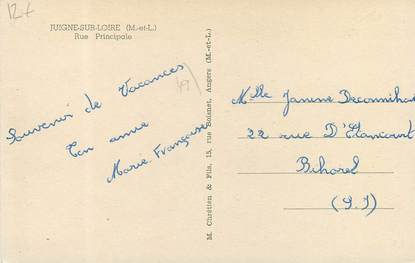 12+
JUIGNE-SUR-LOIRE (M.-et-L.)
Rue Principale
Souvenir de Vacances
Ton amie
Marie-Françoise
M. Chrétien & Fils, 15, rue Boisnet, Angers (M.-et-L.)
Melle Janine
22 rue D'Elancourt
Bihorel
(S.I)